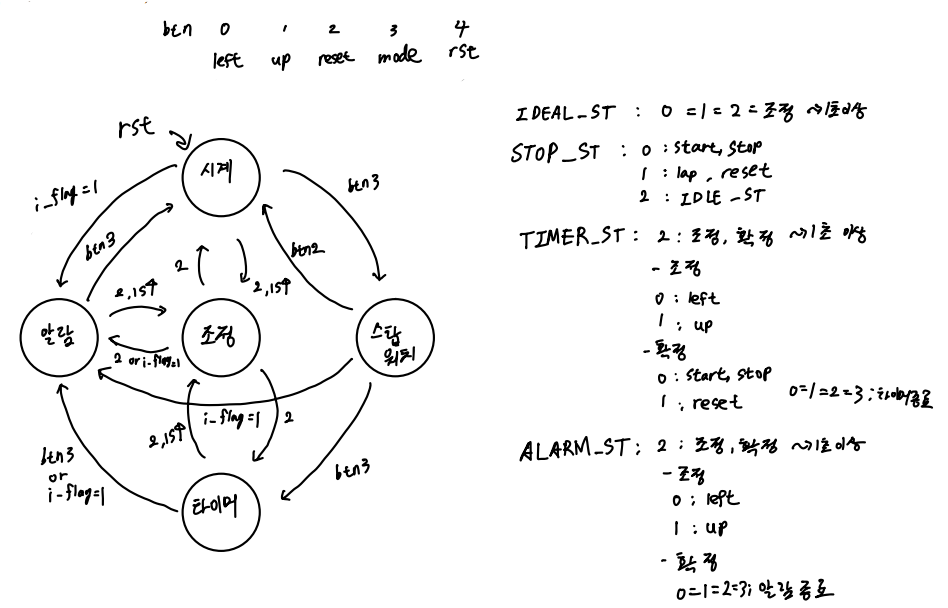 btn 0 1 2 3 4
left up reset mode rst
rst
시계
i_flag=1
btn3
btn3
btn2
2
2, 1s↑
2, 1s↑
알람
조정
스탑
워치
2 or i-flag=1
i_flag=1
2, 1s↑
2
btn3
or
i-flag=1
btn3
타이머
IDEAL_ST : 0 = 1 = 2 = 조정 ~> 1초 이상
STOP_ST : 0 : start, stop
1 : lap, reset
2 : IDLE_ST
TIMER_ST : 2 : 조정, 확정 ~> 1초 이상
- 조정
0 : left
1 : up
- 확정
0 : start, stop
1 : reset 0=1=2=3 ; 타이머종료
ALARM_ST ; 2 : 조정, 확정 ~> 1초 이상
- 조정
0 ; left
1 ; up
- 확정
0=1=2=3; 알람 종료